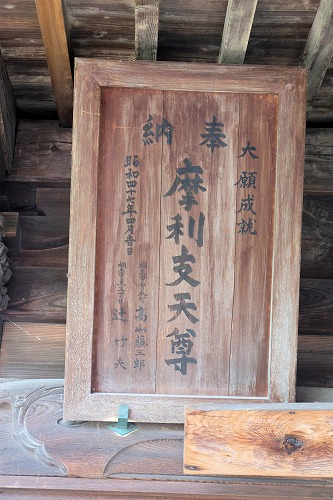 奉納
大願成就
摩利支天尊
昭和四十七年四月吉日
高山藤三郎
辻竹夫